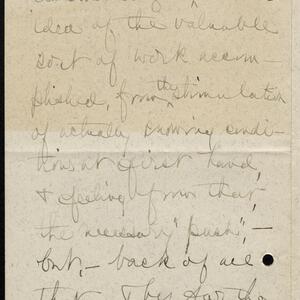 idea of the valuable
sort of work accom-
plished, from the stimulation
of actually knowing condi-
tions at first hand,
& feeling from that,
the necessary "push", –
but, – back of all
that